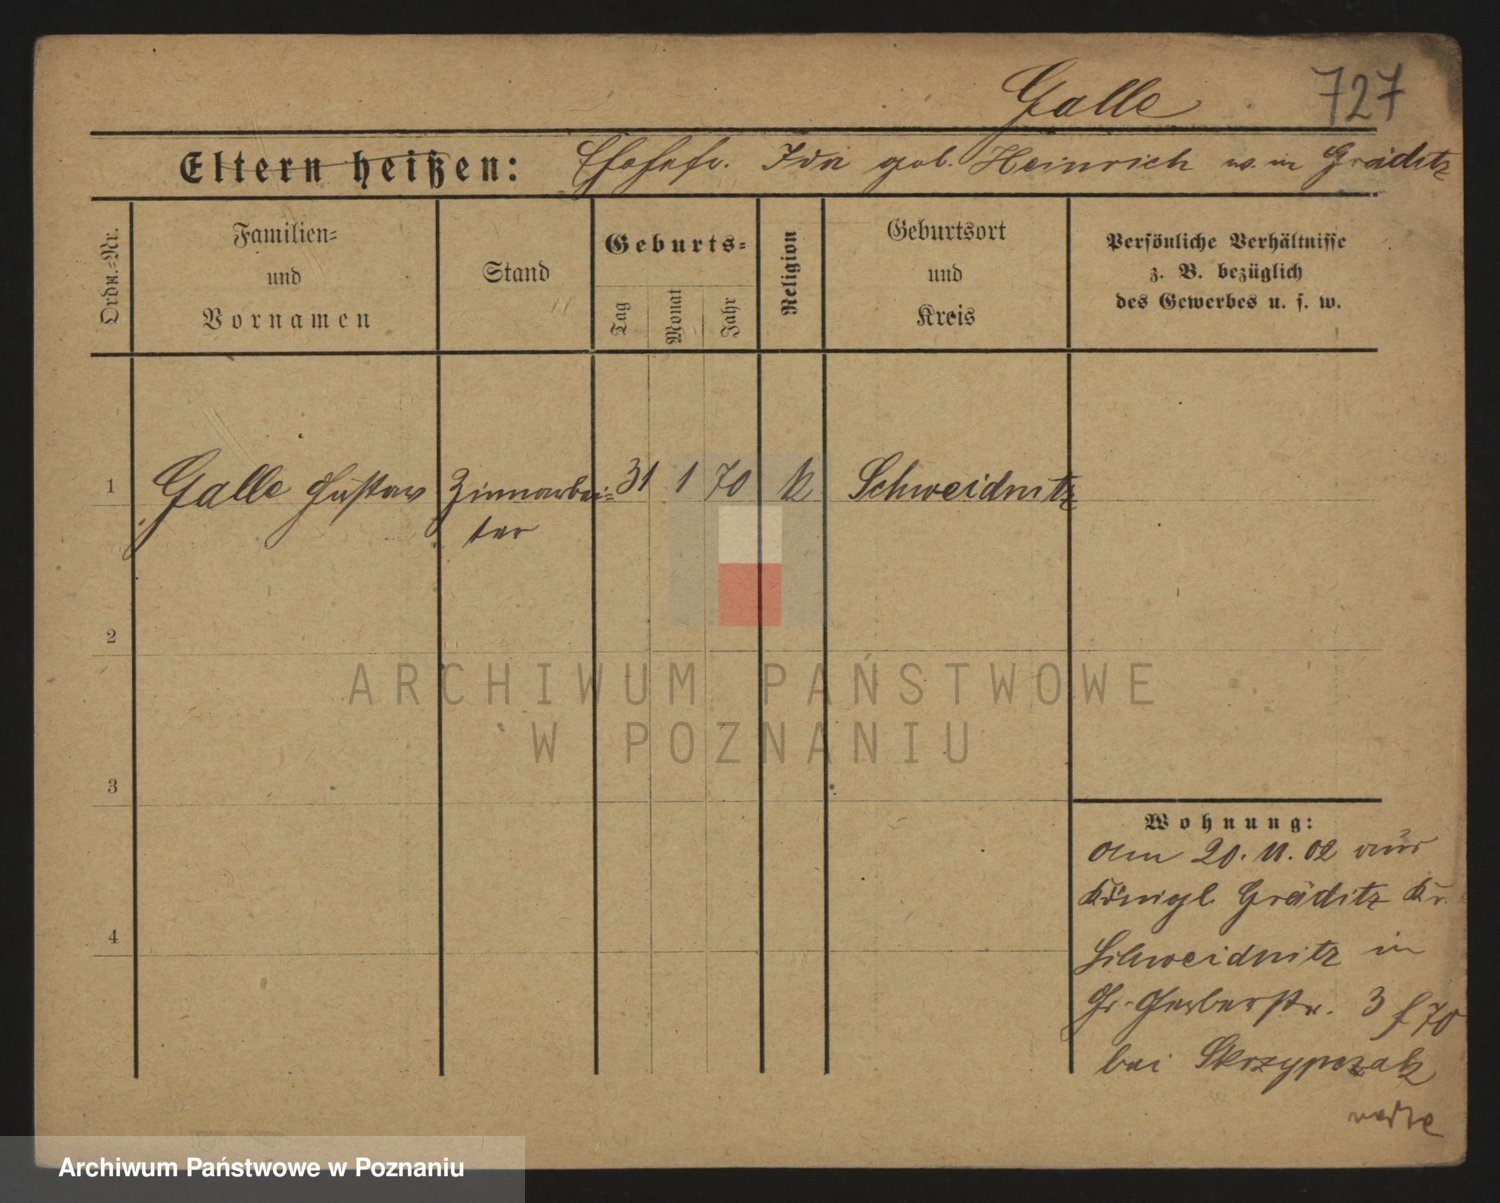 Galle 727
Eltern heißen: Ehefr. Ida geb. Heinrich w. in Gräditz
Ordn.-Nr.
Familien-
und
Vornamen
Stand
Geburts-
Tag
Monat
Jahr
Religion
Geburtsort
und
Kreis
Persönliche Verhältnisse
z. B. bezüglich
des Gewerbes u. s. w.
1 Galle Gustav Zinnarbei- 31 1 70 k Schweidnitz
ter
2
3
4
Wohnung:
Am 20. 11. 02 aus
Königl. Gräditz Kr.
Schweidnitz in
Gr. Gerberstr. 3 f 70
bei Skrzypczak
ARCHIWUM PAŃSTWOWE
W POZNANIU
Archiwum Państwowe w Poznaniu